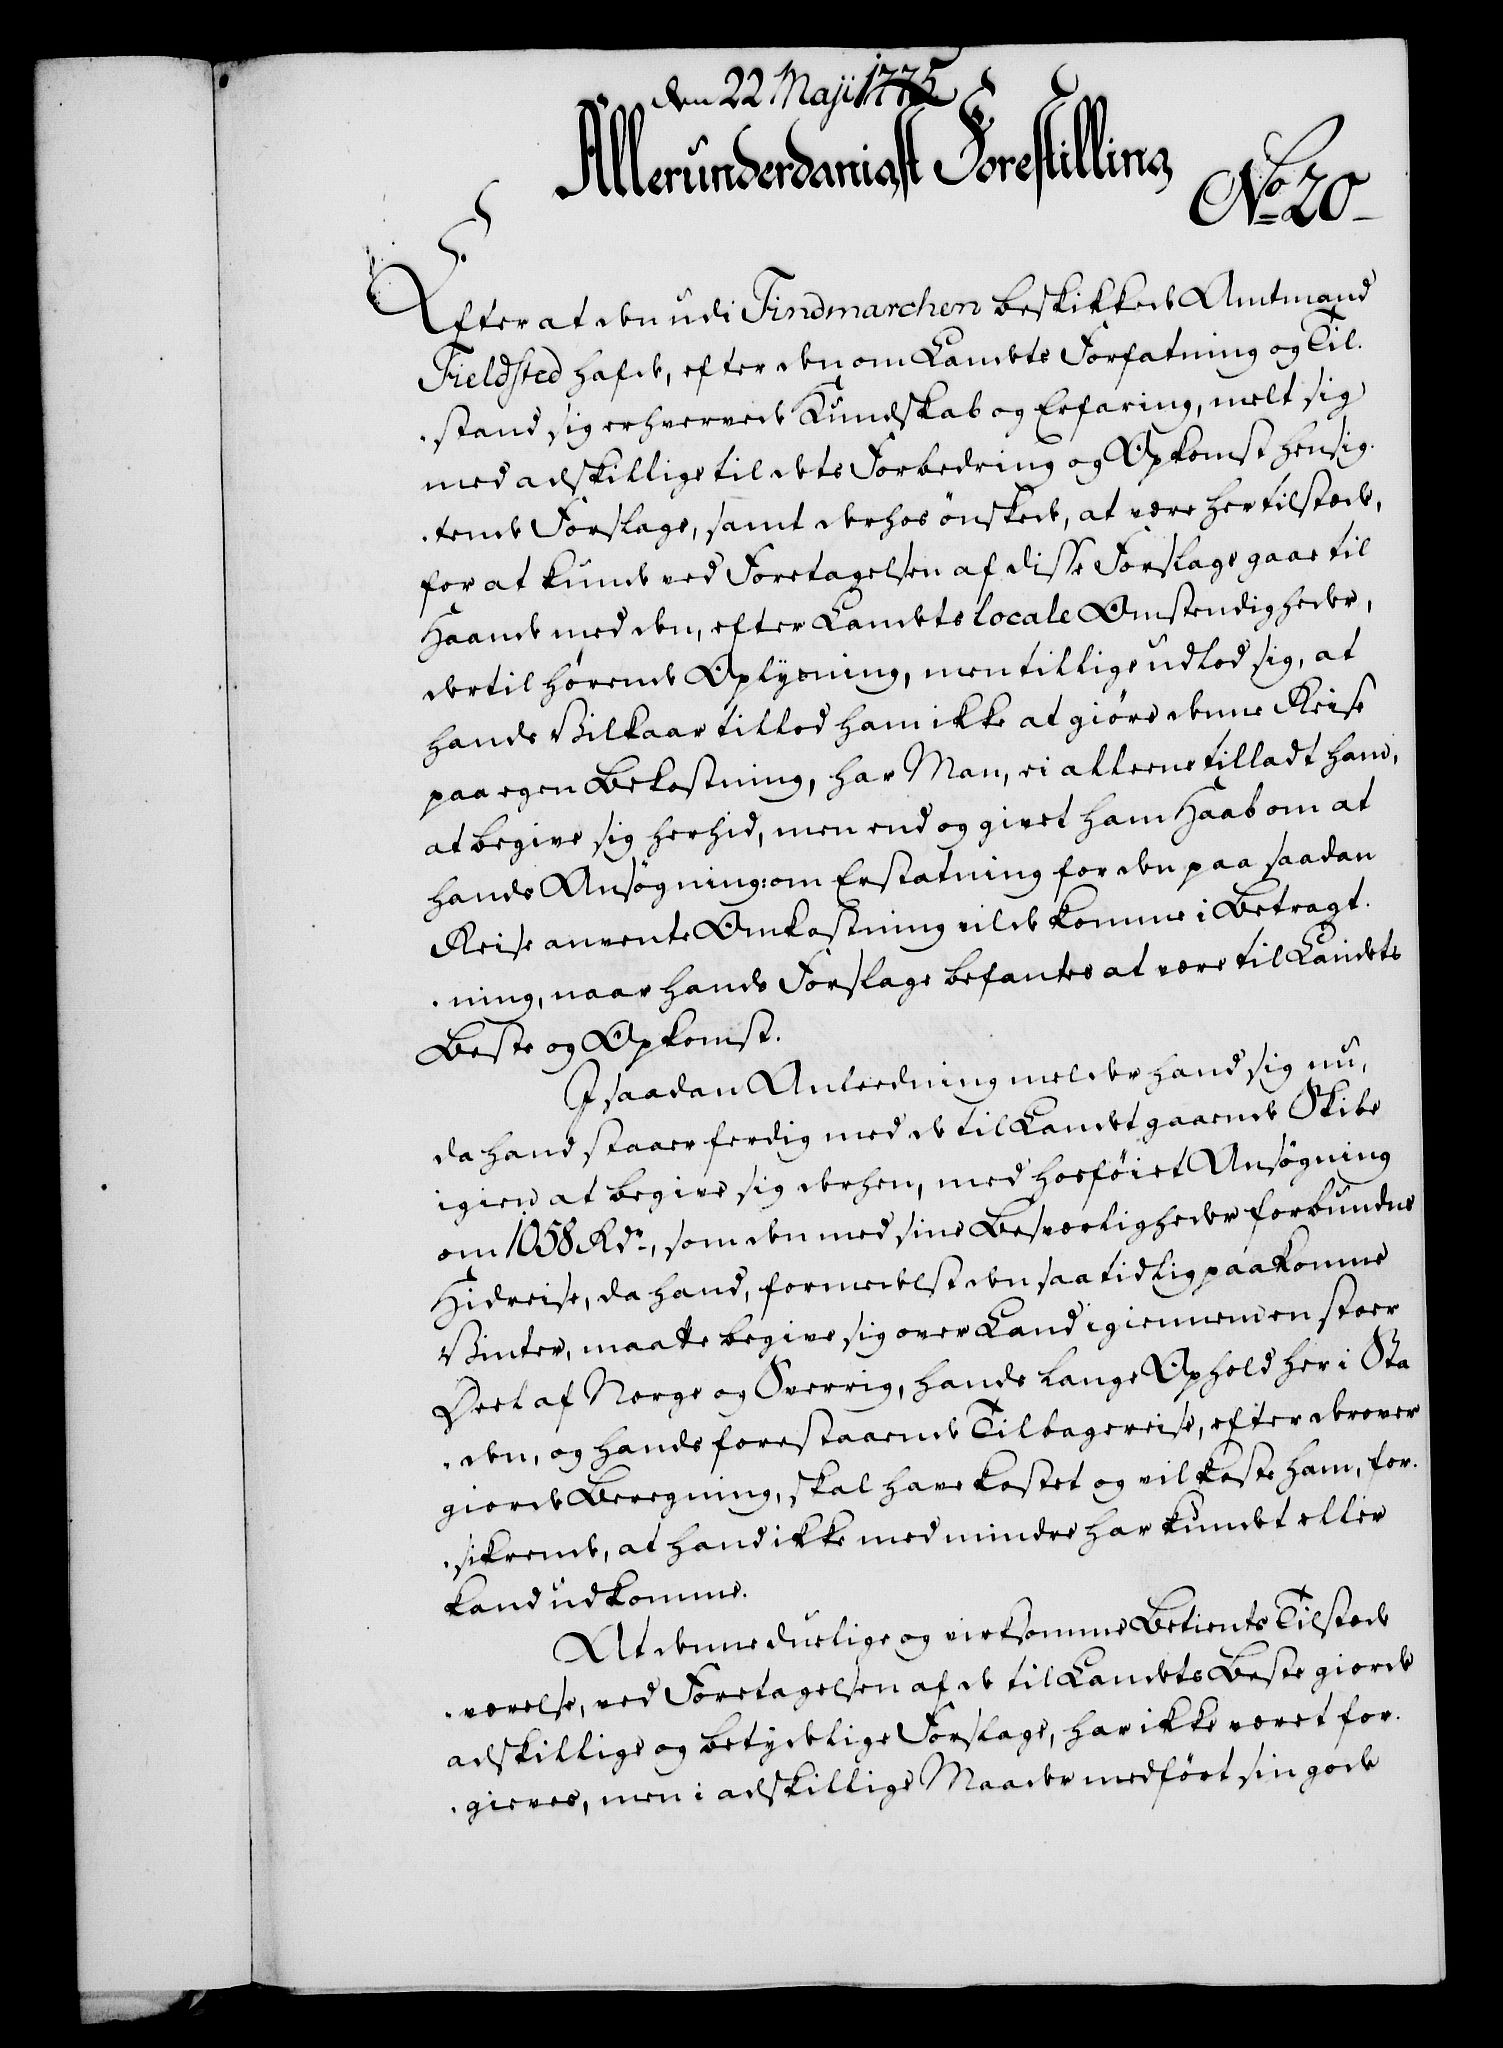 den 22 Maji 1775
Allerunderdanigst Forestilling
No 20
Efter at den udi Findmarchen beskikkede Amtmand
Fieldsted hafde, efter den om Landets Forfatning og Til-
stand sig erhvervede Kundskab og Erfaring, melt sig
med adskillige til dets Forbedring og Opkomst hensig-
tende Forslage, samt derhos ønskede, at være her tilstæde,
for at kunde ved Foretagelsen af disse Forslage gaae til
Haande med den, efter Landets locale Omstendigheder,
dertil hørende Oplysning, men tillige udlod sig, at
hands Vilkaar tillod ham ikke at giøre denne Reise
paa egen Bekostning, har Man, ei alleene tilladt ham,
at begive sig herhid, men end og givet ham Haab om at
hands Ansøgning om Erstatning for den paa saadan
Reise anvente Omkostning vilde komme i Betragt-
ning, naar hands Forslage befantes at være til Landets
Beste og Opkomst.
I saadan Anledning melder hand sig nu,
da hand staaer ferdig med de til Landet gaaende Skibe
igien at begive sig derhen, med hosføiet Ansøgning
om 1058 Rdr, som den med sine Besværligheder forbundne
Hidreise, da hand, formedelst den saa tidlig paakomne
Vinter, maatte begive sig over Land igiennem en stoer
Deel af Norge og Sverrig, hands lange Ophold her i Sta-
den, og hands forestaaende Tilbagereise, efter derover
giorde Beregning, skal have kostet og vil koste ham, for-
sikrende, at hand ikke med mindre har kundet eller
kand udkomme.
At denne duelige og virksomme Betients Tilstæde
værelse, ved Foretagelsen af de til Landets Beste giorde
adskillige og betydelige Forslage, har ikke været for-
gieves, men i adskillige Maader medført sin gode